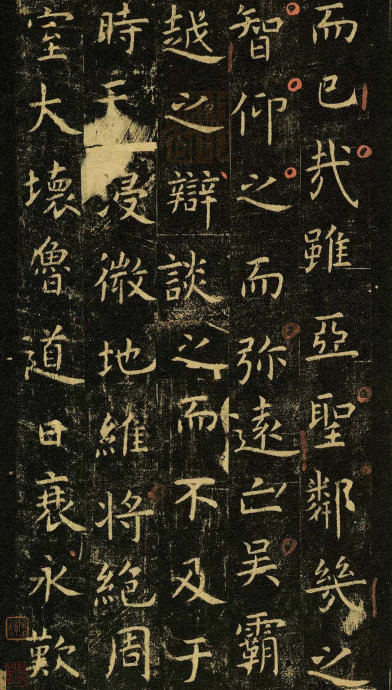 而已哉雖亞聖鄰幾之
智仰之而弥遠亡吳霸
越之辯談之而不及于
時天浸微地維將絕周
室大壞魯道日衰永歎